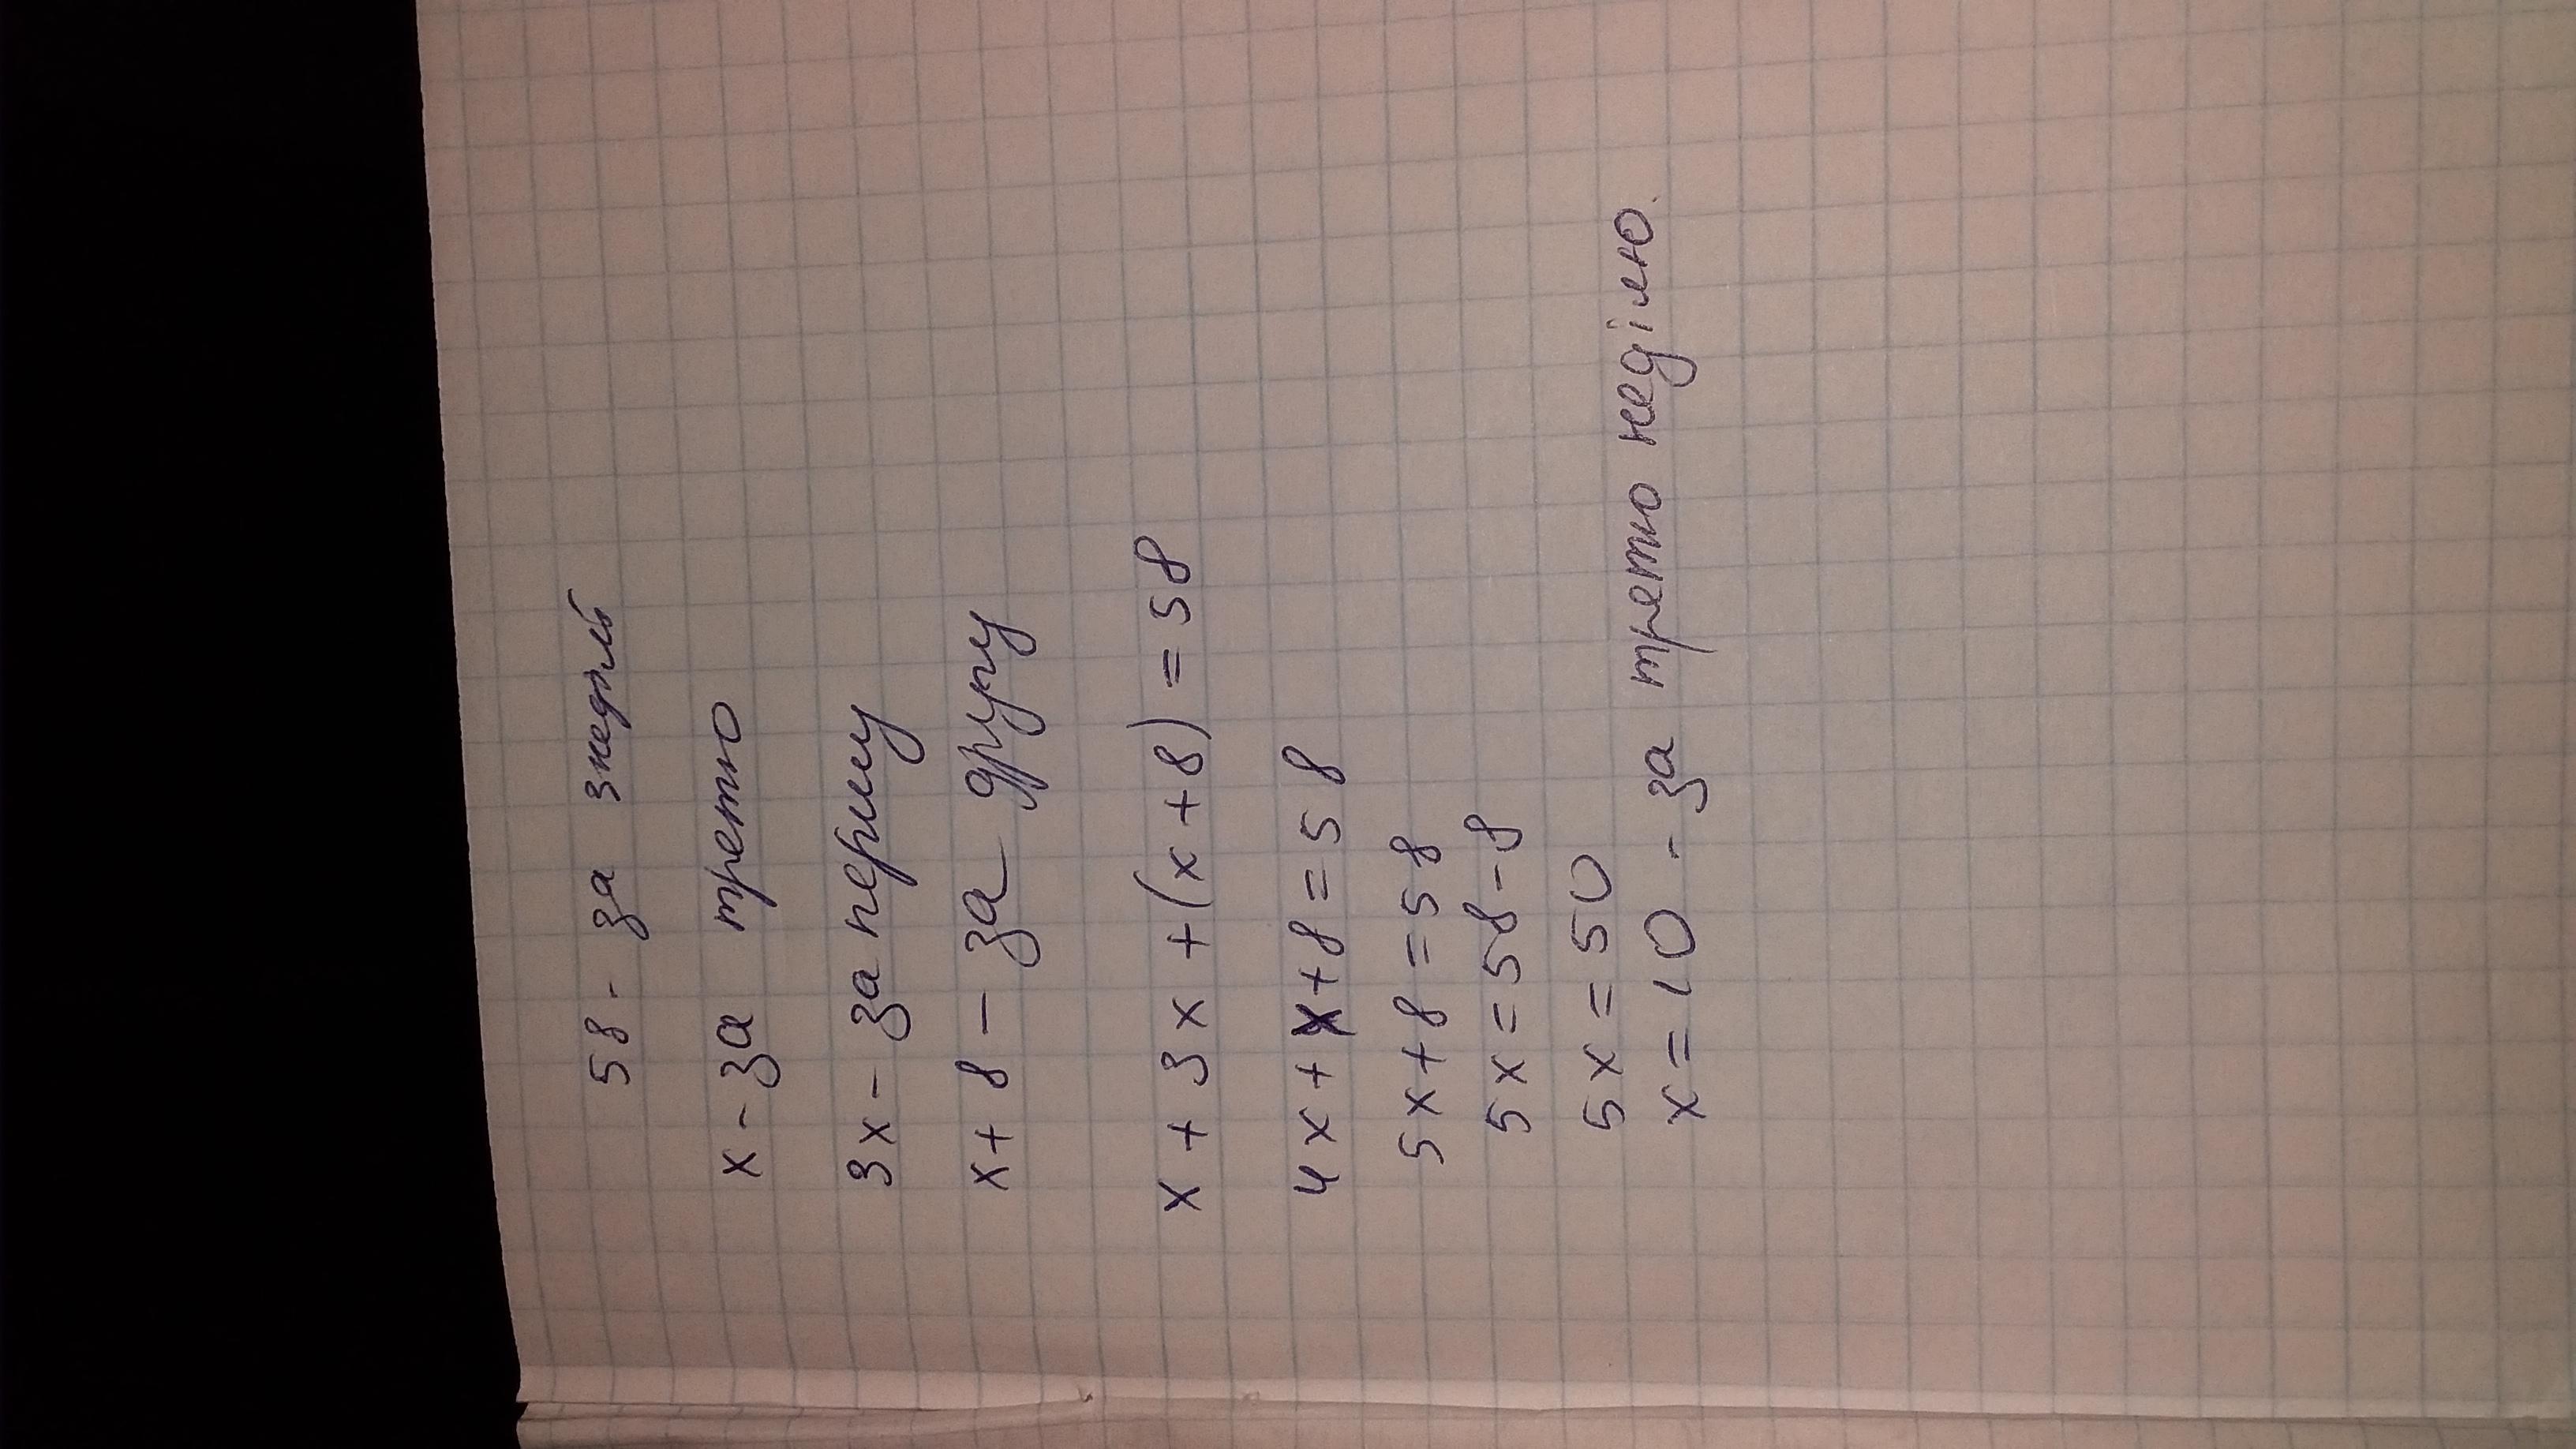 58 - за 3 неділі
x - за третю
3x - за першу
x + 8 - за другу
x + 3x + (x + 8) = 58
4x + x + 8 = 58
5x + 8 = 58
5x = 58 - 8
5x = 50
x = 10 - за третю неділю.